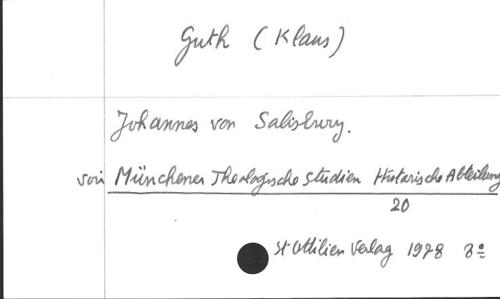 Guth (Klaus)
Johannes von Salisbury.
voir Münchener Theologische Studien Historische Abteilung
20
St Ottilien Verlag 1978 8º